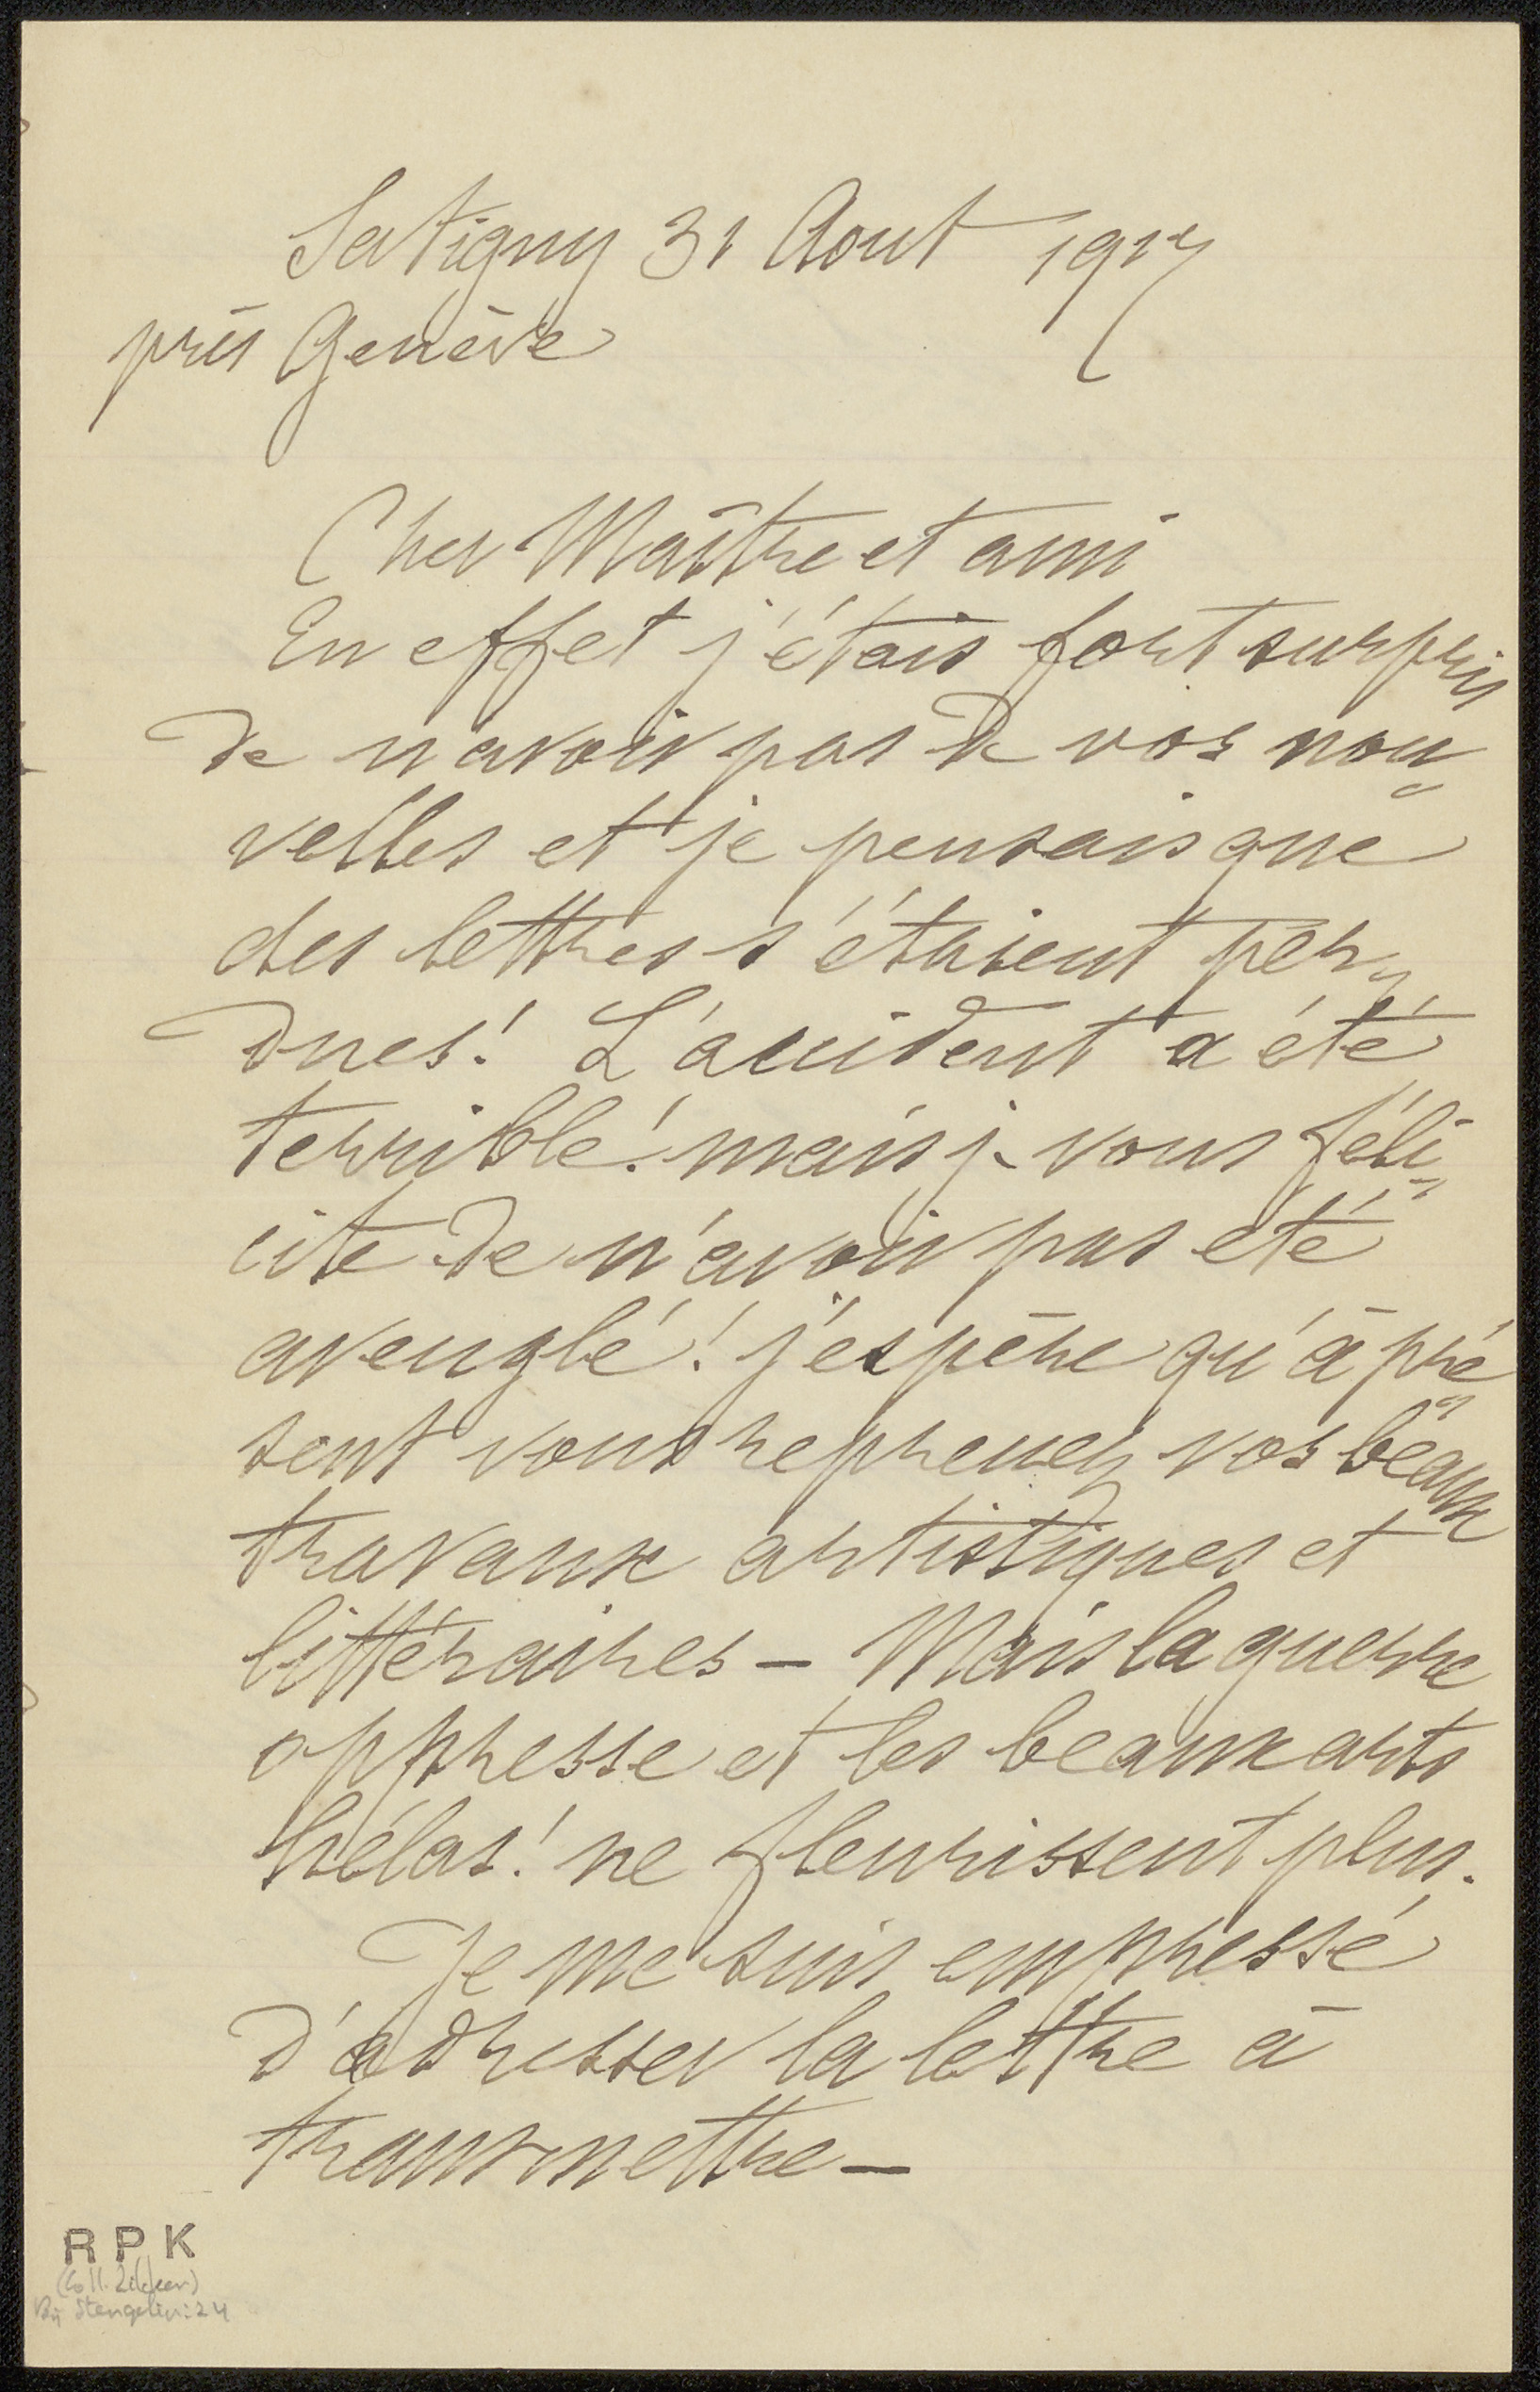 Satigny 31 Aout 1917
près Genève
Cher Maître et ami
En effet j'étais fort surpris
de n'avoir pas de vos nou-
velles et je pensais que
des lettres s'étaient per-
dues! L'accident a été
terrible! mais je vous féli-
cite de n'avoir pas été
aveuglé! j'espère qu'à pré-
sent vous reprenez vos beaux
travaux artistiques et
littéraires — Mais la guerre
oppresse et les beaux arts
hélas! ne fleurissent plus.
Je me suis empressé
d'adresser la lettre à
transmettre —
RPK
(Coll. Zilcken)
Bij Stengelin: 24